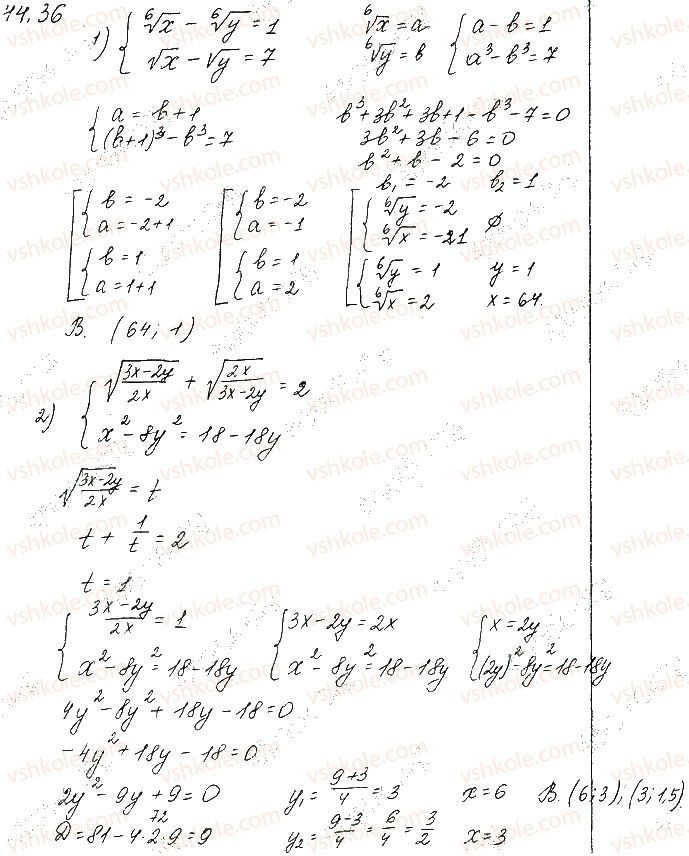 44.36
1) { ⁶√x − ⁶√y = 1
√x − √y = 7
⁶√x = a
⁶√y = b
{ a − b = 1
a³ − b³ = 7
{ a = b + 1
(b+1)³ − b³ = 7
b³ + 3b² + 3b + 1 − b³ − 7 = 0
3b² + 3b − 6 = 0
b² + b − 2 = 0
b₁ = −2 b₂ = 1
[ { b = −2
a = −2+1
{ b = 1
a = 1+1
[ { b = −2
a = −1
{ b = 1
a = 2
[ { ⁶√y = −2
⁶√x = −21 ∅
{ ⁶√y = 1 y = 1
⁶√x = 2 x = 64
В. (64; 1)
2) { √((3x−2y)/(2x)) + √((2x)/(3x−2y)) = 2
x² − 8y² = 18 − 18y
√((3x−2y)/(2x)) = t
t + 1/t = 2
t = 1
{ (3x−2y)/(2x) = 1
x² − 8y² = 18 − 18y
{ 3x − 2y = 2x
x² − 8y² = 18 − 18y
{ x = 2y
(2y)² − 8y² = 18 − 18y
4y² − 8y² + 18y − 18 = 0
−4y² + 18y − 18 = 0
2y² − 9y + 9 = 0
72
D = 81 − 4·2·9 = 9
y₁ = (9+3)/4 = 3 x = 6 В. (6; 3), (3; 1,5)
y₂ = (9−3)/4 = 6/4 = 3/2 x = 3
vshkole.com